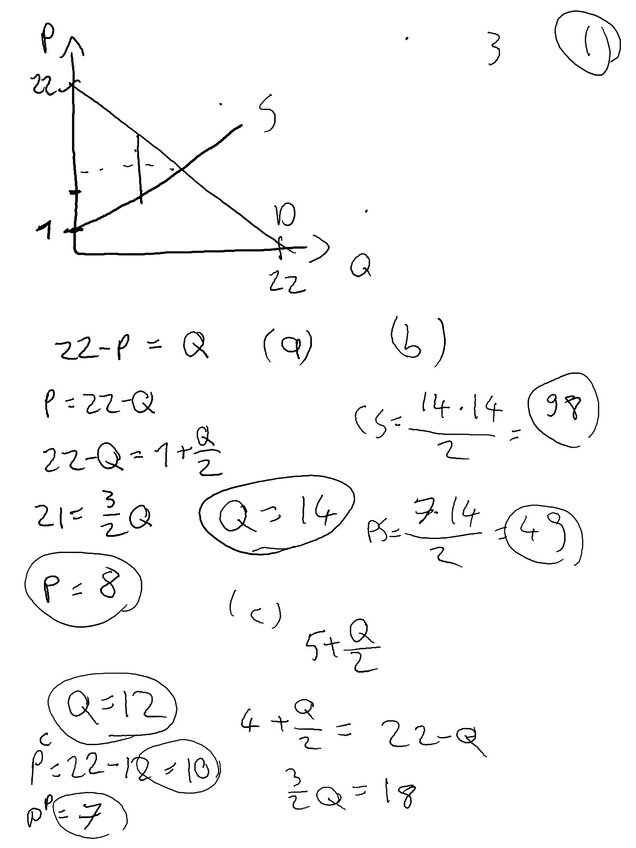 3 (1)
P
22
S
1
D
22
Q
22-P = Q (a) (b)
P=22-Q
CS= 14·14/2 = 98
22-Q=1+Q/2
21= 3/2 Q Q=14
PS= 7·14/2 = 49
P=8
(c)
5+Q/2
Q=12
4+Q/2 = 22-Q
P^C=22-12=10
3/2 Q=18
P^P=7